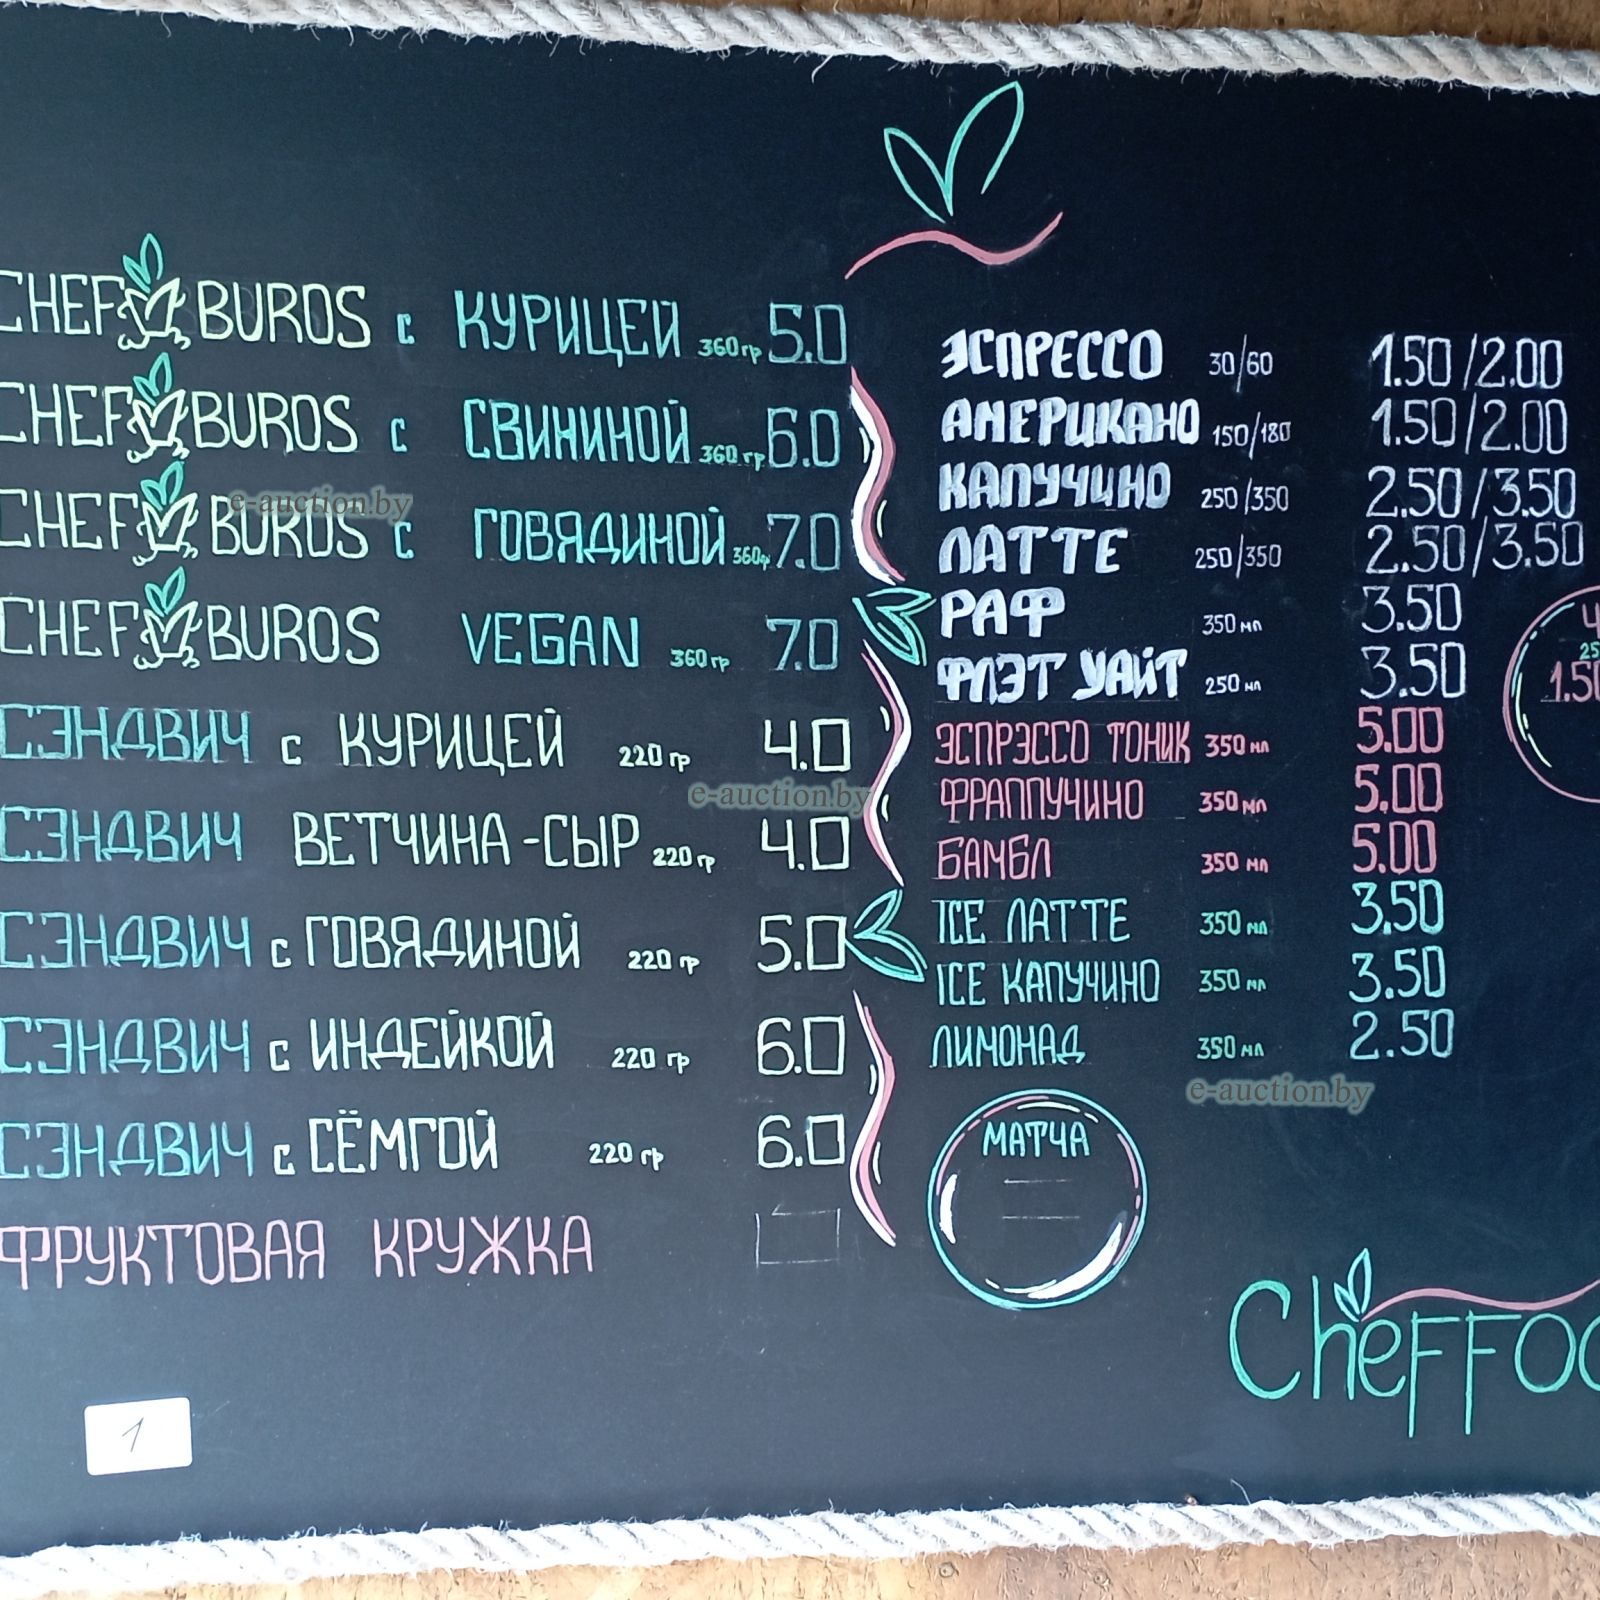 CHEF BUROS с КУРИЦЕЙ 360гр 5.0
CHEF BUROS с СВИНИНОЙ 360гр 6.0
CHEF BUROS с ГОВЯДИНОЙ 360гр 7.0
CHEF BUROS VEGAN 360гр 7.0
СЭНДВИЧ с КУРИЦЕЙ 220 гр 4.0
СЭНДВИЧ ВЕТЧИНА-СЫР 220 гр 4.0
СЭНДВИЧ с ГОВЯДИНОЙ 220 гр 5.0
СЭНДВИЧ с ИНДЕЙКОЙ 220 гр 6.0
СЭНДВИЧ с СЁМГОЙ 220 гр 6.0
ФРУКТОВАЯ КРУЖКА
1
ЭСПРЕССО 30/60 1.50/2.00
АМЕРИКАНО 150/180 1.50/2.00
КАПУЧИНО 250/350 2.50/3.50
ЛАТТЕ 250/350 2.50/3.50
РАФ 350 мл 3.50
ФЛЭТ УАЙТ 250 мл 3.50
ЭСПРЭССО ТОНИК 350 мл 5.00
ФРАППУЧИНО 350 мл 5.00
БАМБЛ 350 мл 5.00
ICE ЛАТТЕ 350 мл 3.50
ICE КАПУЧИНО 350 мл 3.50
ЛИМОНАД 350 мл 2.50
МАТЧА
e-auction.by
e-auction.by
e-auction.by